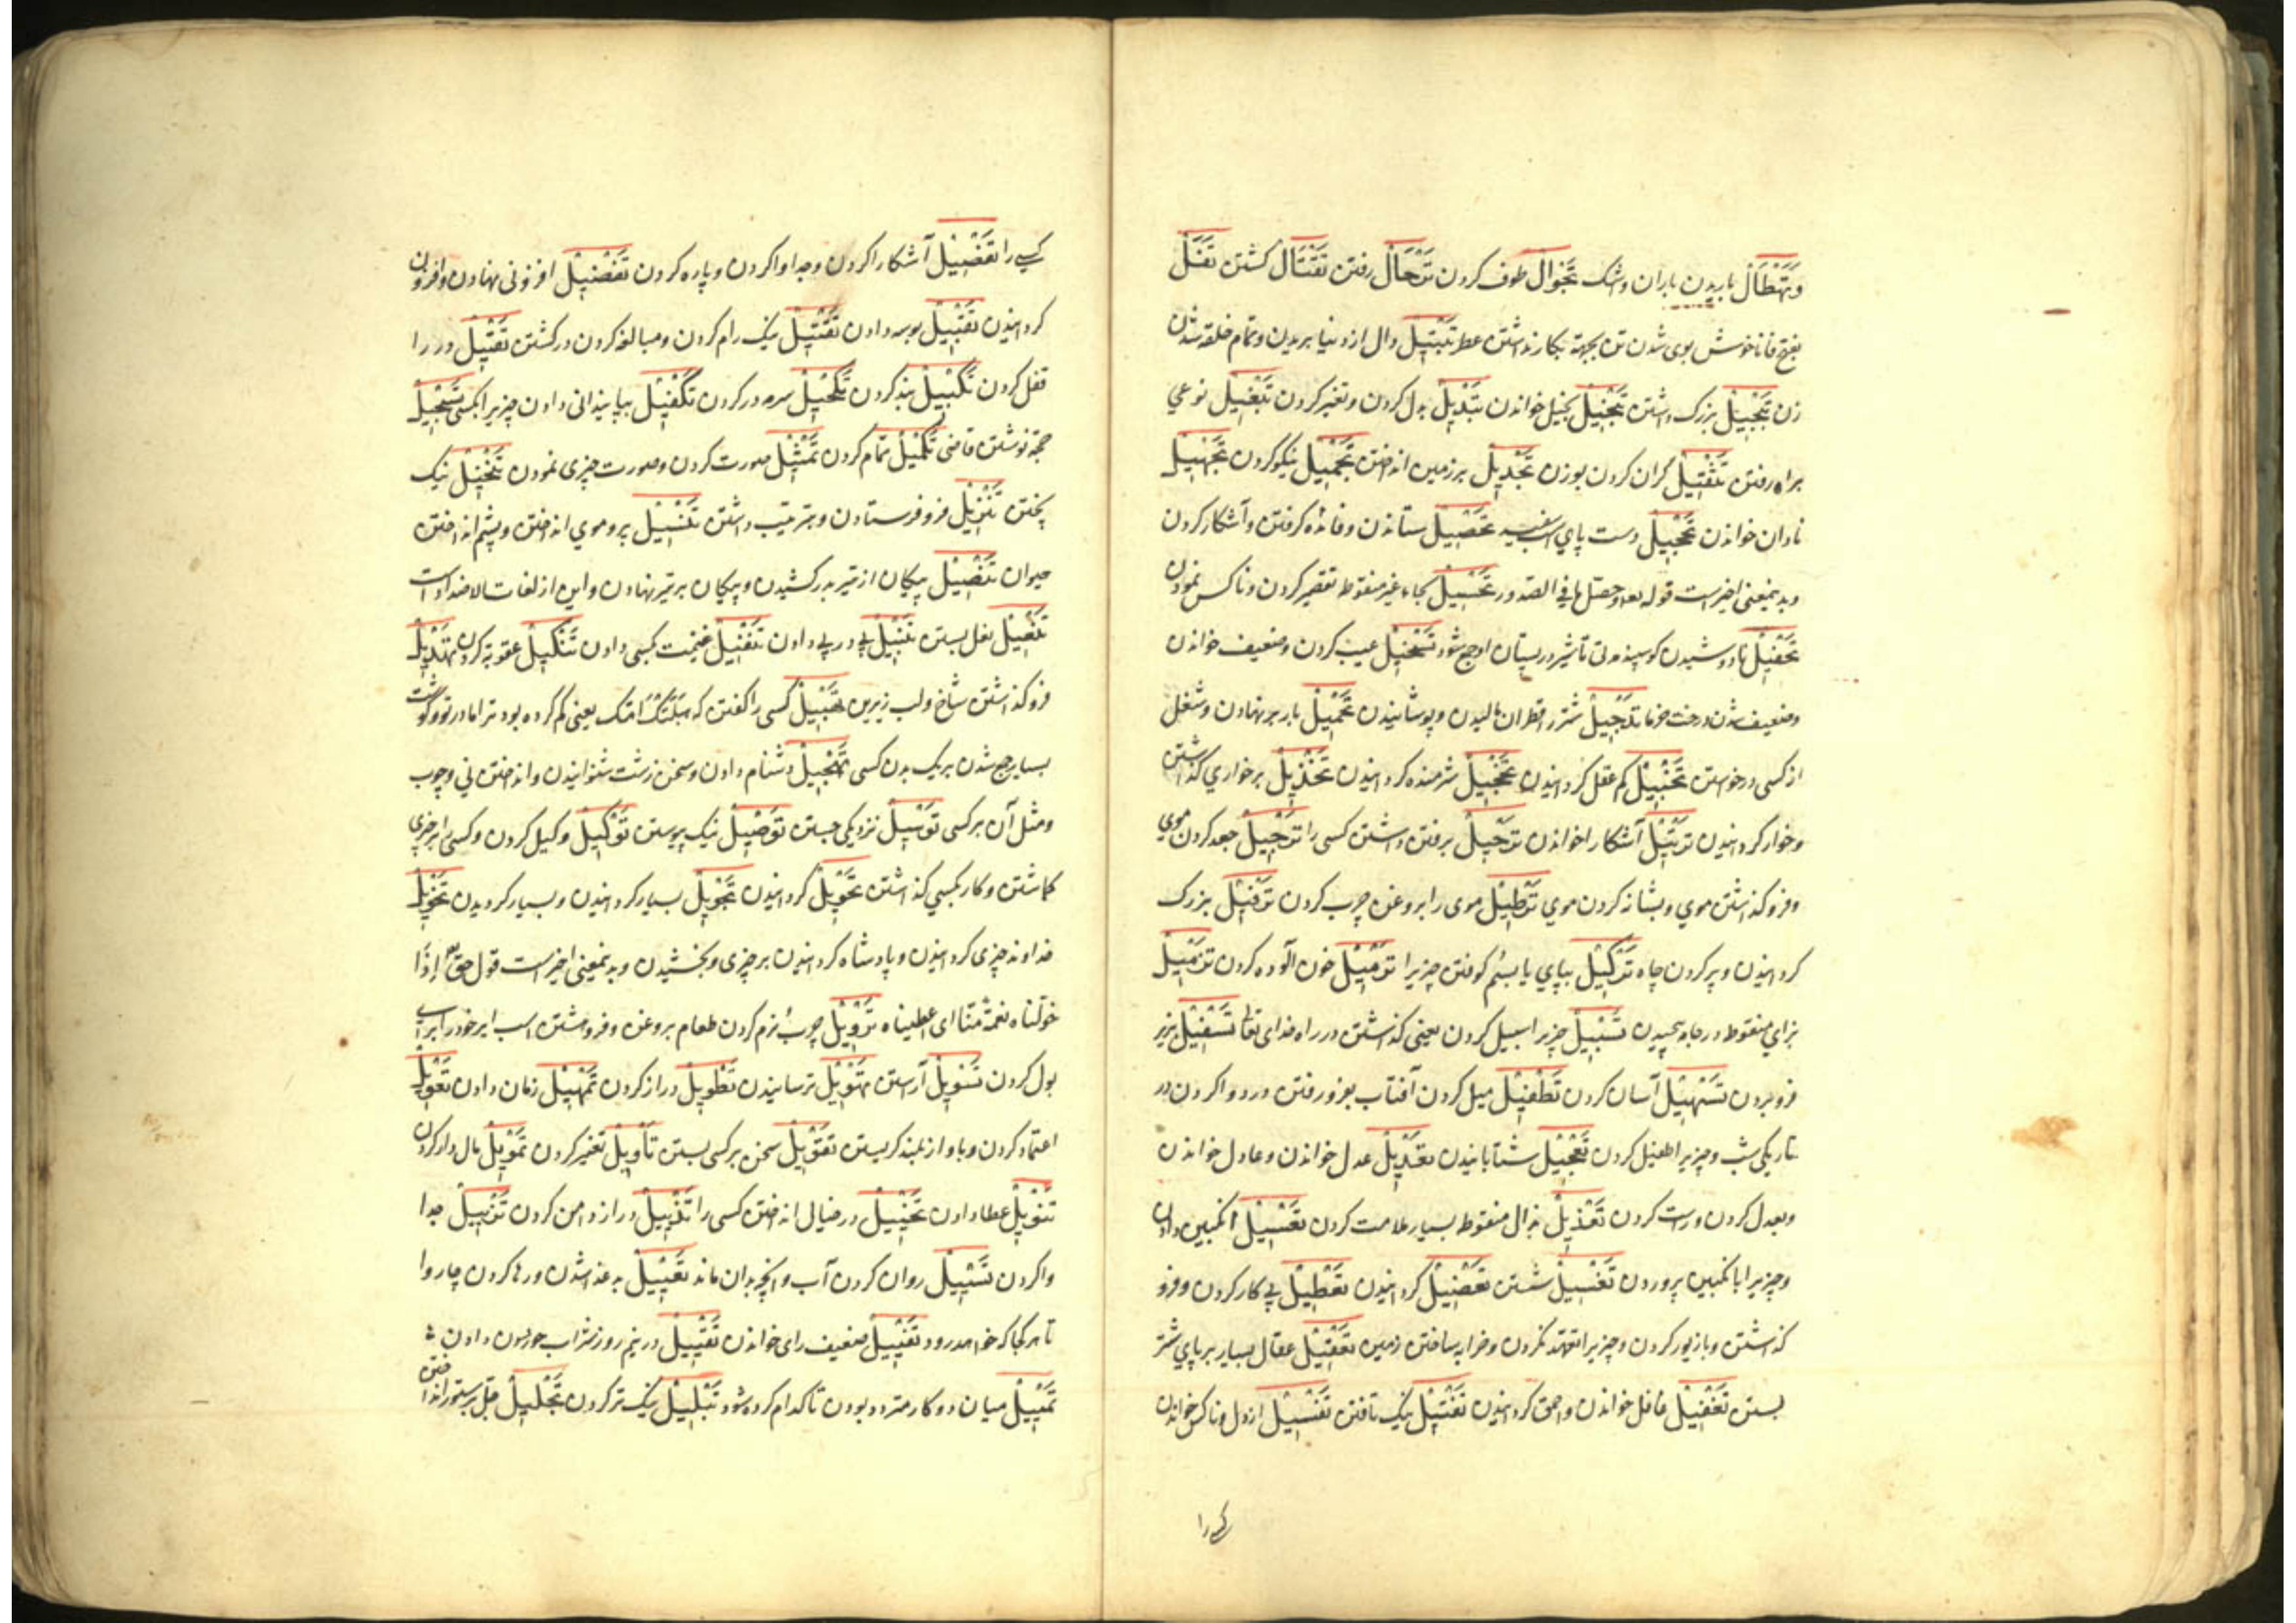 وتَهْطَالْ باریدن باران و اشک تَجْوَالْ طوف کردن تَرْحَالْ رفتن تَقْتَالْ کشتن تَفَلْ
بفتح فا ناخوش بوی شدن تن بجهة بکار نداشتن عطر تَبْتِیلْ دل از دنیا بریدن و تمام خلقه شدن
زن تَبْجِیلْ بزرک داشتن تَبْخِیلْ بخیل خواندن تَبْدِیلْ بدل کردن و تغیر کردن تَبْغِیلْ نوعی
براه رفتن تَثْقِیلْ کران کردن بوزن تَجْدِیلْ بر زمین انداختن تَجْمِیلْ نیکو کردن تَجْهِیلْ
نادان خواندن تَحْجِیلْ دست پای اسب سفید تَحْصِیلْ ستاندن و فائده کرفتن و آشکار کردن
وبدینمعنی اخیرست قوله تعه وحصل ما فی الصدور تَحْسِیلْ بحاء غیر منقوط تقصیر کردن و ناکس نمودن
تَحْفِیلْ نادوشیدن کوسپند مدتی تا شیر در پستان او جمع شود تَسْخِیلْ عیب کردن و ضعیف خواندن
وضعیف شدن درخت خرما تَدْجِیلْ شتر را قطران مالیدن و پوشانیدن تَحْمِیلْ بار بر نهادن و شغل
از کسی درخواستن تَخْبِیلْ کم عقل کردانیدن تَخْجِیلْ شرمنده کردانیدن تَخْذِیلْ بر خواری کذاشتن
و خوار کردانیدن تَرْتِیلْ آشکارا خواندن تَرْحِیلْ برفتن داشتن کسی را تَرْجِیلْ جعد کردن موی
و فرو کذاشتن موی و بشانه کردن موی تَرْطِیلْ موی را بروغن چرب کردن تَرْفِیلْ بزرک
کردانیدن و پر کردن چاه تَرْکِیلْ بپای یا بسم کوفتن چیزیرا تَرْمِیلْ خون آلوده کردن تَزْمِیلْ
بزای منقوط در جامه پیچیدن تَسْبِیلْ چیزیرا سبیل کردن یعنی کذاشتن در راه خدای تعالی تَسْفِیلْ بزیر
فرو بردن تَسْهِیلْ آسان کردن تَطْفِیلْ میل کردن آفتاب بفرو رفتن و رد وا کردن در
تاریکی شب و چیزیرا طفیل کردن تَعْجِیلْ شتابانیدن تَعْدِیلْ عدل خواندن و عادل خواندن
و بعدل کردن و راست کردن تَعْذِیلْ بذال منقوط بسیار ملامت کردن تَعْسِیلْ انکبین دادن
و چیزیرا بانکبین پروردن تَغْسِیلْ شستن تَعْضِیلْ کردانیدن تَعْطِیلْ بی کار کردن و فرو
کذاشتن و بازیور کردن و چیزیرا تعهد نکردن و خرابه ساختن زمین تَعْقِیلْ عقال بسیار بر پای شتر
بستن تَغْفِیلْ غافل خواندن و احمق کردانیدن تَفْتِیلْ نیک تافتن تَفْسِیلْ ارذل و ناکس خواندن
کسی را
کسی را تَفْصِیلْ آشکارا کردن و جدا وا کردن و پاره کردن تَفْضِیلْ افزونی نهادن و افزون
کردانیدن تَقْبِیلْ بوسه دادن تَقْتِیلْ نیک رام کردن و مبالغه کردن در کشتن تَقْفِیلْ در را
قفل کردن تَکْبِیلْ بند کردن تَکْحِیلْ سرمه در کردن تَکْفِیلْ بپایندانی دادن چیزیرا بکسی تَسْجِیلْ
حجة نوشتن قاضی تَکْمِیلْ تمام کردن تَمْثِیلْ صورت کردن و صورت چیزی نمودن تَنْخِیلْ نیک
بیختن تَنْزِیلْ فرو فرستادن و بترتیب داشتن تَنْسِیلْ پر و موی انداختن و پشم انداختن
حیوان تَنْصِیلْ پیکان از تیر بدر کشیدن و پیکان بر تیر نهادن و این از لغات الاضداد است
تَنْعِیلْ نعل بستن تَنْبِیلْ پی در پی دادن تَنْفِیلْ غنیمت بکسی دادن تَنْکِیلْ عقوبه کردن تَهْدِیلْ
فرو کذاشتن شاخ و لب زیرین تَهْبِیلْ کسی را کفتن که هَبَلَتْکَ امّک یعنی کم کرده بود ترا مادر تو و کوشت
بسیار جمع شدن بر یک بدن کسی تَهْجِیلْ دشنام دادن و سخن زشت شنوانیدن و انداختن نی و چوب
و مثل آن بر کسی تَوْسِیلْ نزدیکی جستن تَوْصِیلْ نیک پیوستن تَوْکِیلْ وکیل کردن و کسی را بر چیزی
کماشتن و کار بکسی کذاشتن تَحْوِیلْ کردانیدن تَجْوِیلْ بسیار کردانیدن و بسیار کردیدن تَخْوِیلْ
خداوند چیزی کردانیدن و پادشاه کردانیدن بر چیزی و بخشیدن وبدینمعنی اخیرست قول حق تعه إذا
خوّلناه نعمة منّا ای اعطیناه تَرْوِیلْ چرب و نرم کردن طعام بروغن و فرو هشتن اسب ایر خود را برای
بول کردن تَسْوِیلْ آراستن تَهْوِیلْ ترسانیدن تَطْوِیلْ دراز کردن تَمْهِیلْ زمان دادن تَعْوِیلْ
اعتماد کردن و باواز بلند کریستن تَقْوِیلْ سخن بر کسی بستن تَأْوِیلْ تغییر کردن تَمْوِیلْ مال دار کردن
تَنْوِیلْ عطا دادن تَخْیِیلْ در خیال انداختن کسی را تَذْیِیلْ دراز دامن کردن تَزْیِیلْ جدا
وا کردن تَسْیِیلْ روان کردن آب و آنچه بدان ماند تَعْیِیلْ بدغذا شدن و رها کردن چاروا
تا هر کجا که خواهد رود تَفْیِیلْ ضعیف رای خواندن تَقْیِیلْ در نیم روز شراب خوردن دادن
تَمْیِیلْ میان دو کار متردد بودن تا کدام کرده شود تَبْلِیلْ نیک تر کردن تَجْلِیلْ جل بر ستور انداختن